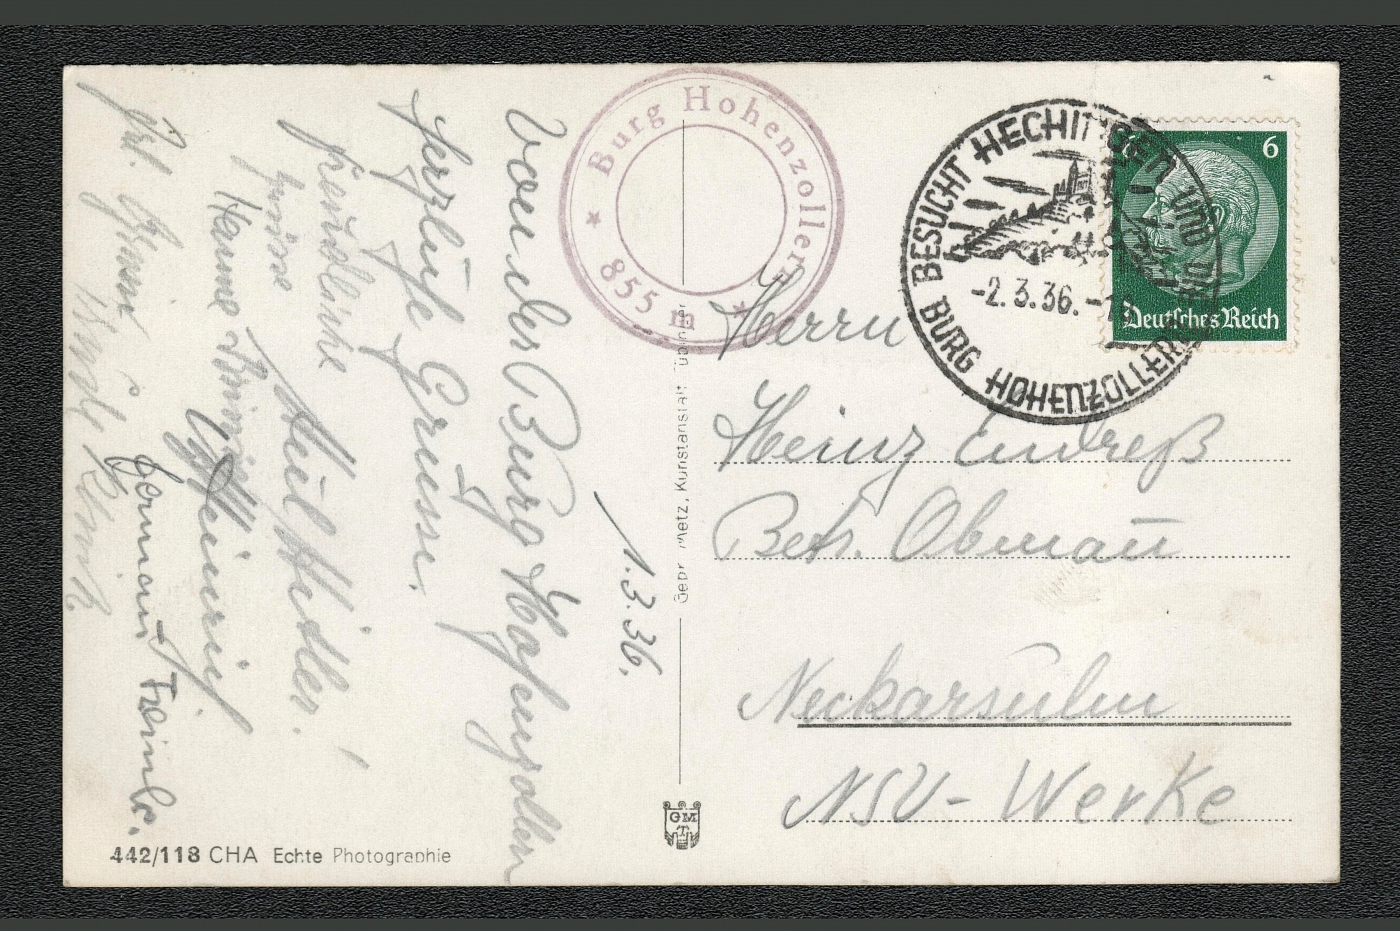 Burg Hohenzollern
855 m
BESUCHT HECHINGEN UND DIE
BURG HOHENZOLLERN
-2.3.36.-1
6
Deutsches Reich
Herrn
Heinz Endreß
Betr. Obmañ
Neckarsulm
NSU-Werke
1.3.36.
Von der Burg Hohenzollern
herzliche Grüsse.
freundliche
Grüsse
Hanne
Heinrich
Hermañ
Frl.
Gebr. Metz, Kunstanstalt Tübingen
GMT
442/118 CHA Echte Photographie